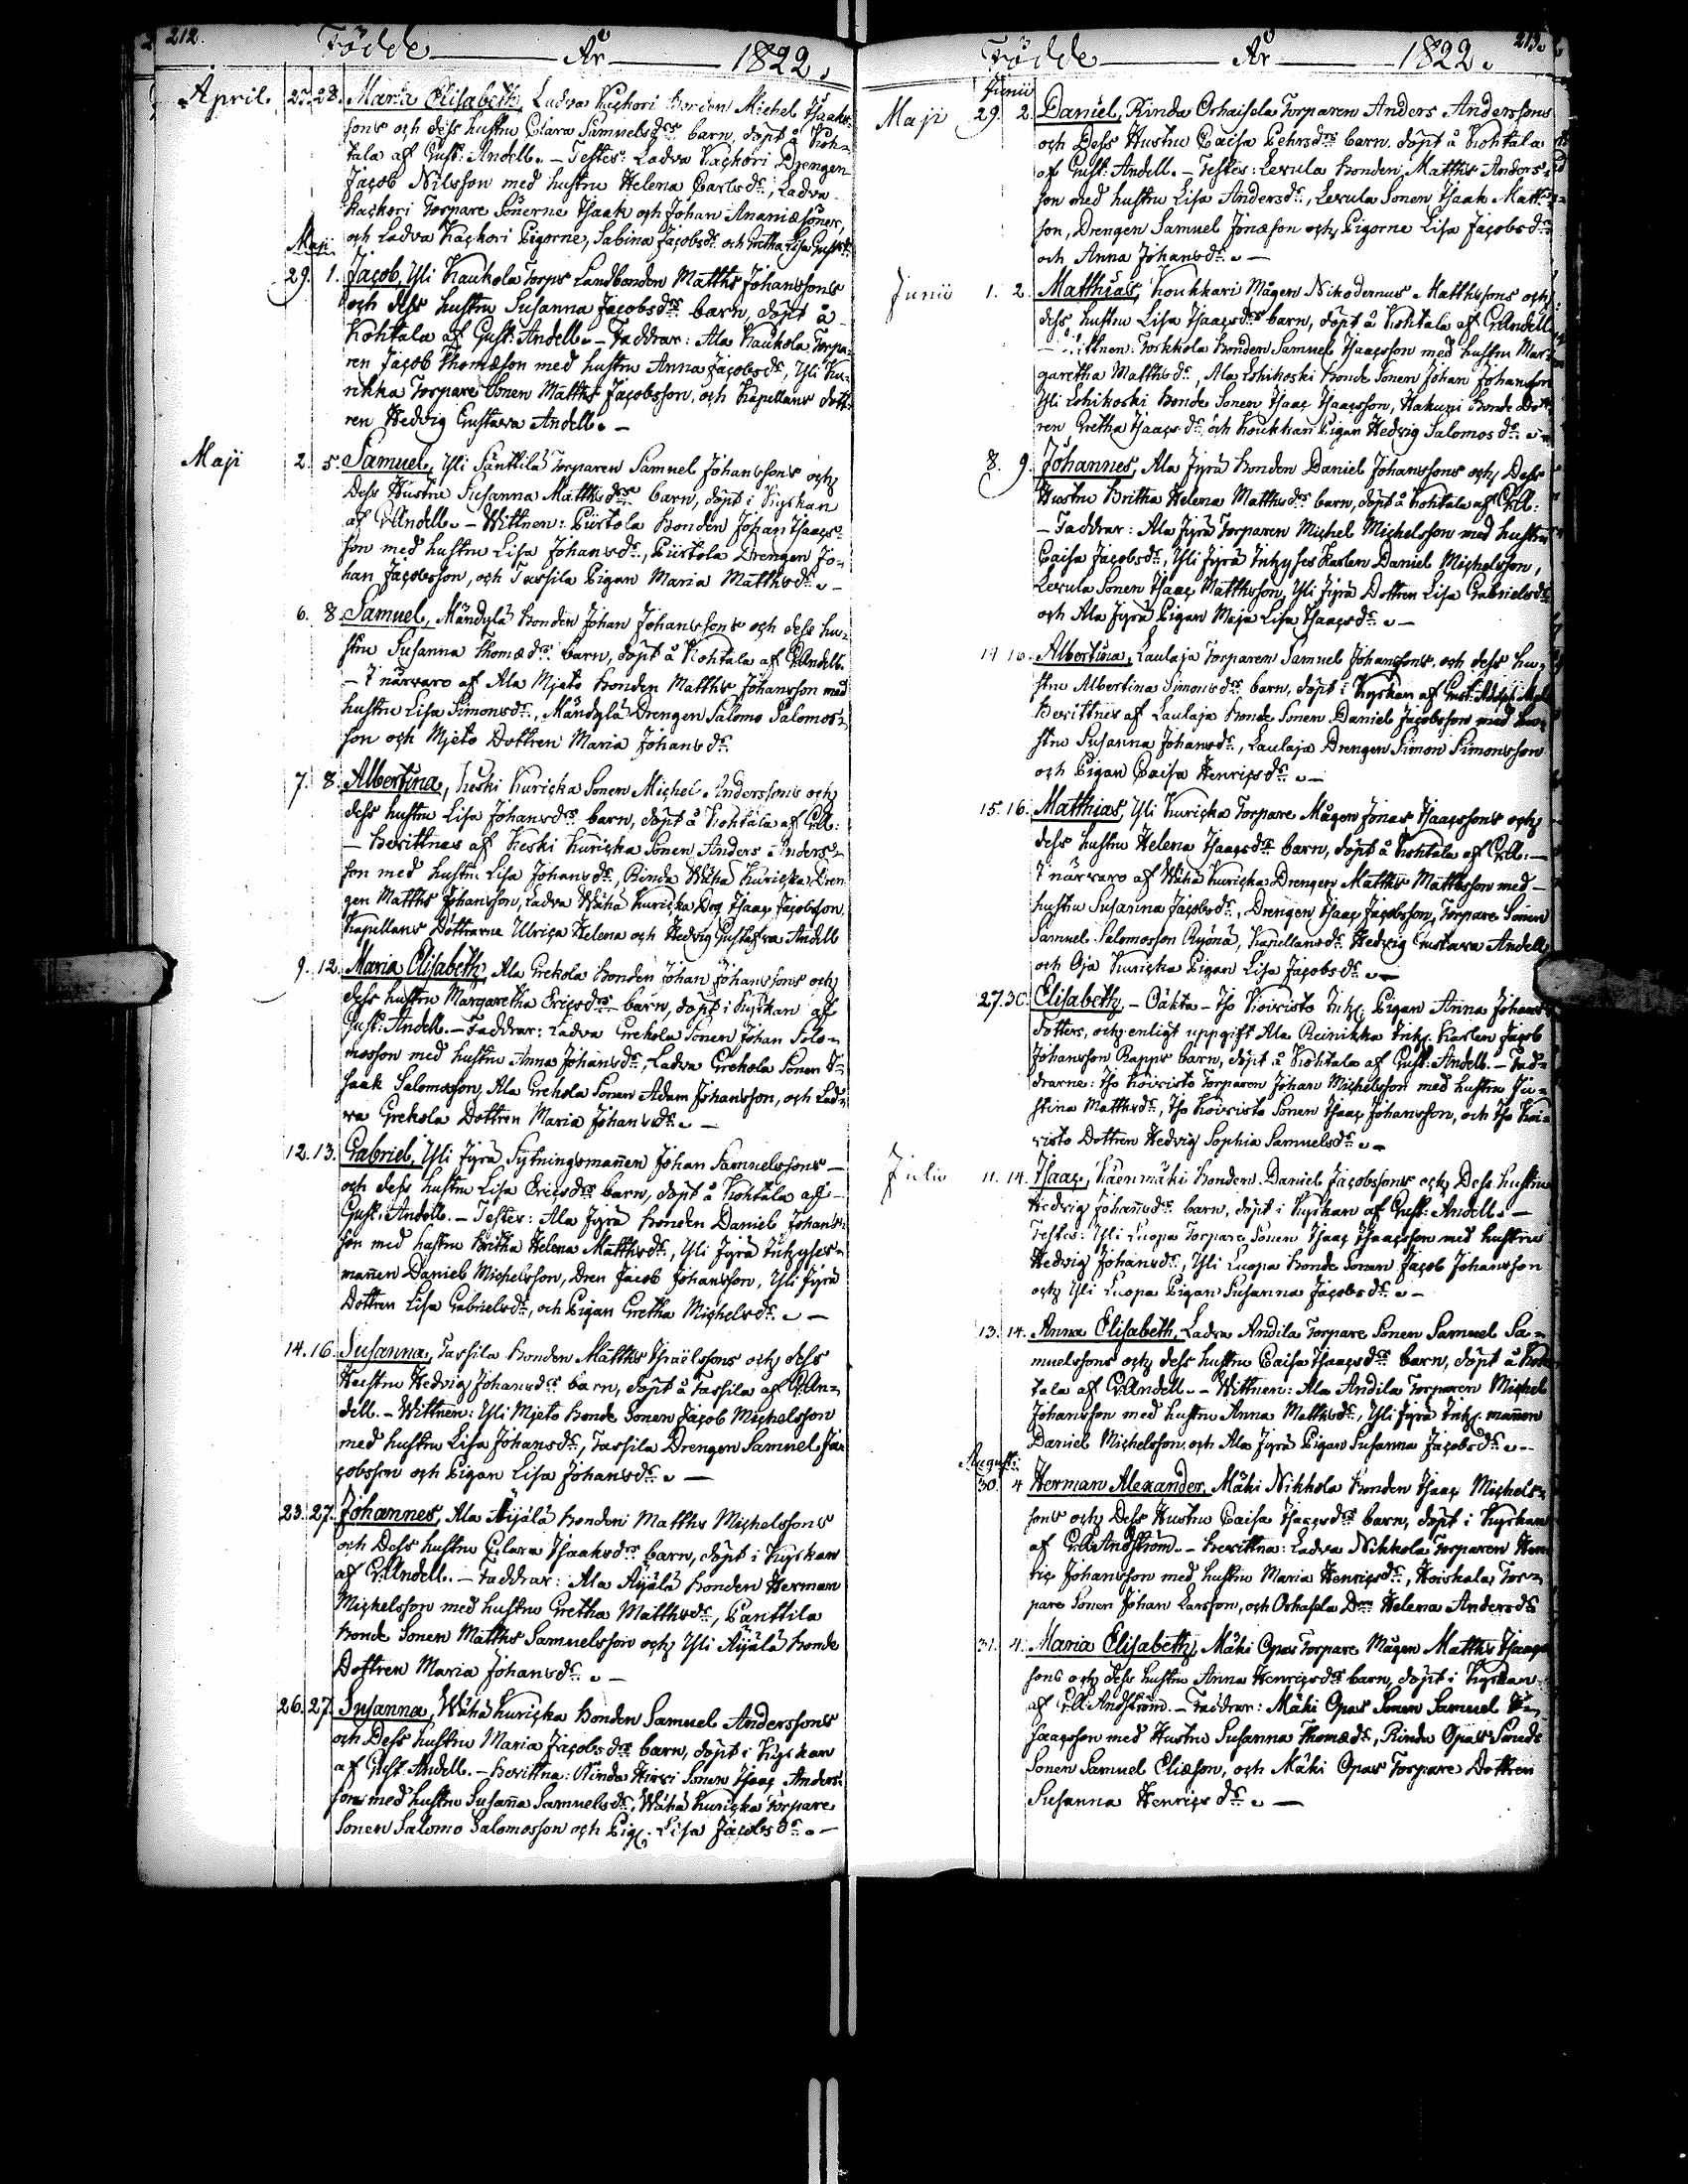 212.
Födde År 1822.
April. 27. 28. Maria Elisabeth, Ladva Kackori Bonden Michel Isaaks-
sons och dess hustru Clara Samuelsdrs barn, döpt å Koh-
tala af Gust: Andell. - Testes: Ladva Kackori Drengen
Jacob Nilsson med hustru Helena Carlsdr, Ladva
Kackori Torpare Sönerne Isaak och Johan Ananiæsöner,
och Ladva Kackori Pigorne, Sabina Jacobsdr och Gretha Lisa
Maji
29. 1. Jacob, Yli Kaukola Torps Landbonden Matths Johanssons
och dess hustru Susanna Jacobsdrs barn, döpt å
Kohtala af Gust: Andell. - Faddrar: Ala Kaukola Torpa-
ren Jacob Thomæson med hustru Anna Jacobsdr, Yli Ku-
rikka Torpare Sonen Matths Jacobsson, och Kapellans dott-
ren Hedvig Gustava Andell. -
Maji 2. 5. Samuel, Yli Sänttilä Torparen Samuel Johanssons och
Dess Hustru Susanna Matthsdrs barn, döpt i Kyrkan
af G:Andell. - Wittnen: Piirtola Bonden Johan Isaacs-
son med hustru Lisa Johansdr, Piirtola Drengen Jo-
han Jacobsson, och Tassila Pigan Maria Matthsdr. -
6. 8. Samuel, Mändylä Bonden Johan Johanssons och dess hu-
stru Susanna Thomædrs barn, döpt å Kohtala af G:Andell.
- I närvaro af Ala Mjeto Bonden Matths Johansson med
hustru Lisa Simonsdr, Mändylä Drengen Salomo Salomos-
son och Mjeto Dottren Maria Johansdr.
7. 8. Albertina, Keski Kuricka Sonen Michel Anderssons och
dess hustru Lisa Johansdrs barn, döpt å Kohtala af G:A:
- Bevittnas af Keski Kuricka Sonen Anders Anders-
son med hustru Lisa Johansdr, Rinda Wähä Kuricka Dren
gen Matths Johansson, Ladva Wähä Kuricka Drg Isaac Jacobsson,
Kapellans Döttrarne Ulrica Helena och Hedvig Gustafva Andell
9. 12. Maria Elisabeth, Ala Grekola Bonden Johan Johanssons och
dess hustru Margaretha Ericsdrs barn, döpt i Kyrkan af
Gust: Andell. - Faddrar: Ladva Grekola Sonen Johan Salo-
mosson med hustru Anna Johansdr, Ladva Grekola Sonen I-
saak Salomosson, Ala Grekola Sonen Adam Johansson, och Lad-
va Grekola Dottren Maria Johansdr. -
12. 13. Gabriel, Yli Jyrä Sytningsmañen Johan Samuelssons -
och dess hustru Lisa Ericsdrs barn, döpt å Kohtala af -
Gust: Andell. - Testes: Ala Jyrä Bonden Daniel Johans-
son med hustru Britha Helena Matthsdr, Yli Jyrä Inhyses-
mañen Daniel Michelsson, Dren Jacob Johansson, Yli Jyrä
Dottren Lisa Gabrielsdr, och Pigan Gretha Michelsdr. -
14. 16. Susanna, Tassila Bonden Matths Israëlssons och dess
Hustru Hedvig Johansdrs barn, döpt å Tassila af G:An-
dell. - Wittnen: Yli Mjeto Bonde Sonen Jacob Michelsson
med hustru Lisa Johansdr, Tassila Drengen Samuel Ja-
cobsson och Pigan Lisa Johansdr. -
23. 27. Johannes, Ala Äijälä Bonden Matths Michelssons
och Dess hustru Clara Isaaksdrs barn, döpt i Kyrkan
af G:Andell. - Faddrar: Ala Äijälä Bonden Herman
Michelsson med hustru Gretha Matthsdr, Panttila
Bonde Sonen Matths Samuelsson och Yli Äijälä Bonde
Dottren Maria Johansdr. -
26. 27. Susanna, Wähä Kuricka Bonden Samuel Anderssons
och Dess hustru Maria Jacobsdrs barn, döpt i Kyrkan
af Gust: Andell. - Bevittna: Rinda Hirvi Sonen Isaac Anders-
son med hustru Susaña Samuelsdr, Wähä Kuricka Torpare
Sonen Salomo Salomosson och Pig: Lisa Jacobsdr. -
213.
Födde År 1822.
Junii
Maji 29. 2. Daniel, Rinda Orhaisela Torparen Anders Anderssons
och Dess Hustru Caisa Pehrsdrs barn, döpt å Kohtala
af Gust: Andell. - Testes: Levula Bonden Matths Anders-
son med hustru Lisa Andersdr, Levula Sonen Isaak Matths-
son, Drengen Samuel Jonæson och Pigorne Lisa Jacobsdr
och Anna Johansdr. -
Junii 1. 2. Matthias, Koukkari Mågen Nikodemus Matthssons och
dess hustru Lisa Isaacsdrs barn, döpt å Kohtala af G:Andell
- Wittnen: Torkkola Bonden Samuel Isaacsson med hustru Mar-
garetha Matthsdr, Ala Lohikoski Bonde Sonen Johan Johansson
Yli Lohikoski Bonde Sonen Isaac Isaacsson, Hakuni Bonde Dott-
ren Gretha Isaacsdr och Koukkari Pigan Hedvig Salomosdr. -
8. 9. Johannes, Ala Jyrä Bonden Daniel Johanssons och Dess
Hustru Britha Helena Matthsdrs barn, döpt å Kohtala af G:A:
- Faddrar: Ala Jyrä Torparen Michel Michelsson med hustru
Caisa Jacobsdr, Yli Jyrä Inhyses Karlen Daniel Michelsson,
Levula Sonen Isaac Matthsson, Yli Jyrä Dottren Lisa Gabrielsdr
och Ala Jyrä Pigan Maja Lisa Isaacsdr. -
14 16. Albertina, Laulaja Torparen Samuel Johanssons och dess hu-
stru Albertina Simonsdrs barn, döpt i Kyrkan af Gust:
Bevittnes af Laulaja Bonde Sonen Daniel Jacobsson med hu-
stru Susanna Johansdr, Laulaja Drengen Simon Simonsson
och Pigan Caisa Henricsdr. -
15. 16. Matthias, Yli Kuricka Torpare Mågen Jonas Isaacssons och
dess hustru Helena Isaacsdrs barn, döpt å Kohtala af G:A: -
I närvaro af Wähä Kuricka Drengen Matths Matthsson med -
hustru Susanna Jacobsdr, Drengen Isaac Jacobsson, Torpare Sonen
Samuel Salomosson Ryönä, Kapellansdr Hedvig Gustava Andell
och Oja Kuricka Pigan Lisa Jacobsdr. -
27. 30. Elisabeth, - Oäkta - Iso Koivisto Inh: Pigan Anna Johans
dotters, och enligt uppgift Ala Reinikka Inh: Karlen Jacob
Johansson Rapps barn, döpt å Kohtala af Gust: Andell. - Fad-
drarne: Iso Koivisto Torparen Johan Michelsson med hustru Ju-
stina Matthsdr, Iso Koivisto Sonen Isaac Johansson, och Iso Koi-
visto Dottren Hedvig Sophia Samuelsdr. -
Julii 11. 14. Isaac, Käenmäki Bonden Daniel Jacobssons och Dess Hustru
Hedvig Johañsdrs barn, döpt i Kyrkan af Gust: Andell. -
Testes: Yli Luopa Torpare Sonen Isaac Isaacsson med hustru
Hedvig Johansdr, Yli Luopa Bonde Sonen Jacob Johansson
och Yli Luopa Pigan Susanna Jacobsdr. -
13. 14. Anna Elisabeth, Ladva Andila Torpare Sonen Samuel Sa-
muelssons och dess hustru Caisa Isaacsdrs barn, döpt å Koh-
tala af G:Andell. - Wittnen: Ala Andila Torparen Michel
Johansson med hustru Anna Matthsdr, Yli Jyrä Inh: mañen
Daniel Michelsson och Ala Jyrä Pigan Susanna Jacobsdr. -
Augusti
30. 4 Herman Alexander, Mäki Nikkola Bonden Isaac Michels-
sons och Dess Hustru Caisa Isaacsdrs barn, döpt i Kyrkan
af G:A:Andström. - Bevittna: Ladva Nikkola Torparen Hen-
ric Johansson med hustru Maria Henricsdr, Koiskala Tor-
pare Sonen Johan Larsson, och Orhasela Drn Helena Andersdr
31. 4. Maria Elisabeth, Mäki Opas Torpare Mågen Matths Isaacs
sons och dess hustru Anna Henricsdrs barn, döpt i Kyrkan
af G:A:Andström. - Faddrar: Mäki Opas Sonen Samuel I-
saacsson med Hustru Susanna Thomædr, Rinda Opas
Sonen Samuel Eliæson, och Mäki Opas Torpare Dottren
Susanna Henricsdr. -